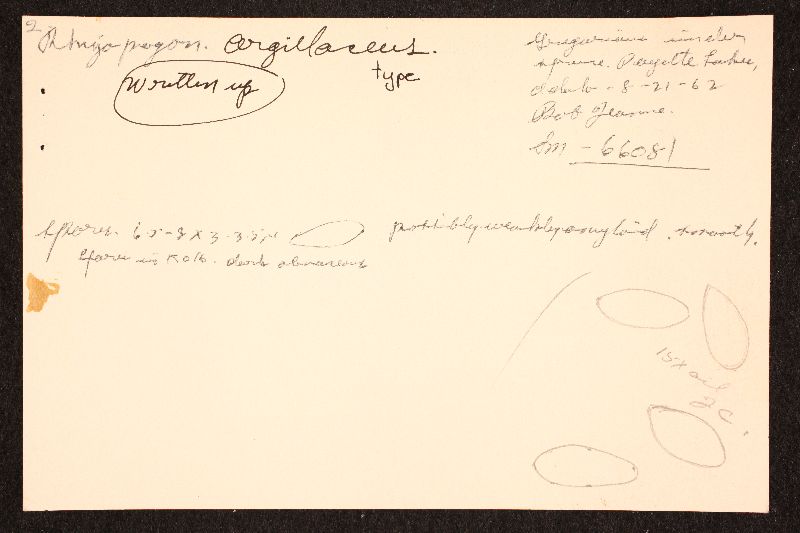 2
Rhizopogon. argillaceus.
type
Written up
Gregarious under
spruce. Payette Lakes,
Idaho - 8-21-62
Bob
Sm - 66081
Spores. 6.5-8 x 3-3.5 µ possibly weakly amyloid. smooth.
Spores in KOH. dark
15x